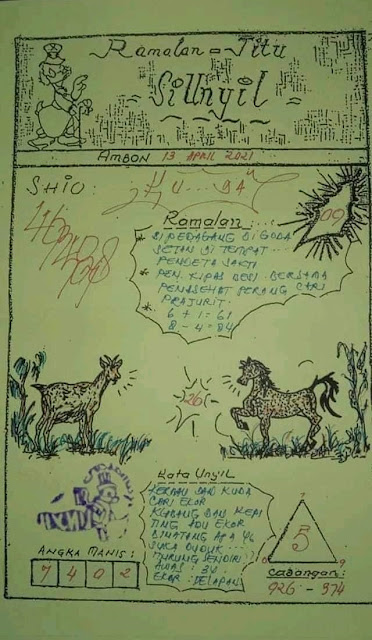 Ramalan = Jitu
SiUnyil
AMBON 13 APRIL 2021
SHIO:
09
Ramalan
* SI PEDAGANG DI GODA
SETAN DI TEMPAT
PENDETA SAKTI
* PEN. KIPAS DEWI BERSAMA
PENASEHAT PERANG CARI
PRAJURIT.
* 6 + 1 = 61
8 - 4 = 84
26
Kata Unyil
DAN KUDA
CARI EKOR
DAN KEPI
TING ADU EKOR
BINATANG APA YG
SUKA DUDUK
SENDIRI
AWAS : 34
EKOR : DELAPAN
ANGKA MANIS :
7 4 0 2
7
5
9
Cabangan:
926 - 374